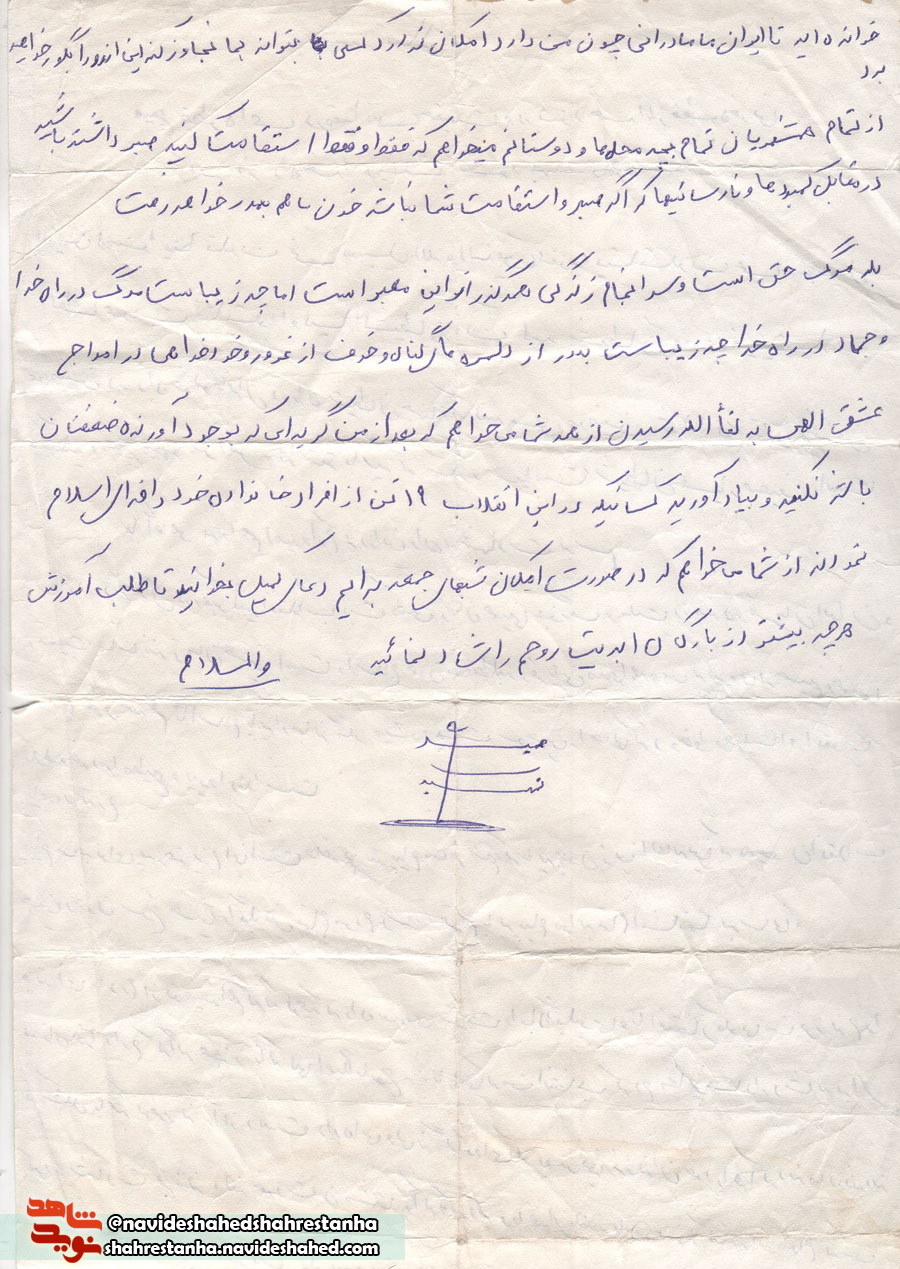 خوانده اید تا ایران ما مادرانی چون من دارد امکان ندارد کسی بتواند بما تجاوز کند این آرزو را بگور خواهد
برد
از تمام همشهریان تمام بچه محله ها و دوستانم میخواهم که فقط و فقط استقامت کنید صبر داشته باشید
در مقابل کمبودها و نارسائیها که اگر صبر و استقامت شما نباشد خون ما هم بهدر خواهد رفت
بله مرگ حق است و سرانجام زندگی همه گذر از این معبر است اما چه زیباست مرگ در راه خدا
و جهاد در راه خدا چه زیباست بدور از دلهره های گناه و خوف از غرور و خودخواهی در امواج
عشق الهی به لقأ الله رسیدن از همه شما می خواهم که بعد از من گریه ای که بوجود آورنده ضعفتان
باشد نکنید و بیاد آورید کسانیکه در این انقلاب ۱۹ تن از افراد خانواده خود را فدای اسلام
نمودند از شما می خواهم که در صورت امکان شبهای جمعه برایم دعای کمیل بخوانید تا طلب آمورزش
هرچه بیشتر از بارگاه ابدیت روحم را شاد نمائید والسلام
شاهد
نوید
@navideshahedshahrestanha
shahrestanha.navideshahed.com